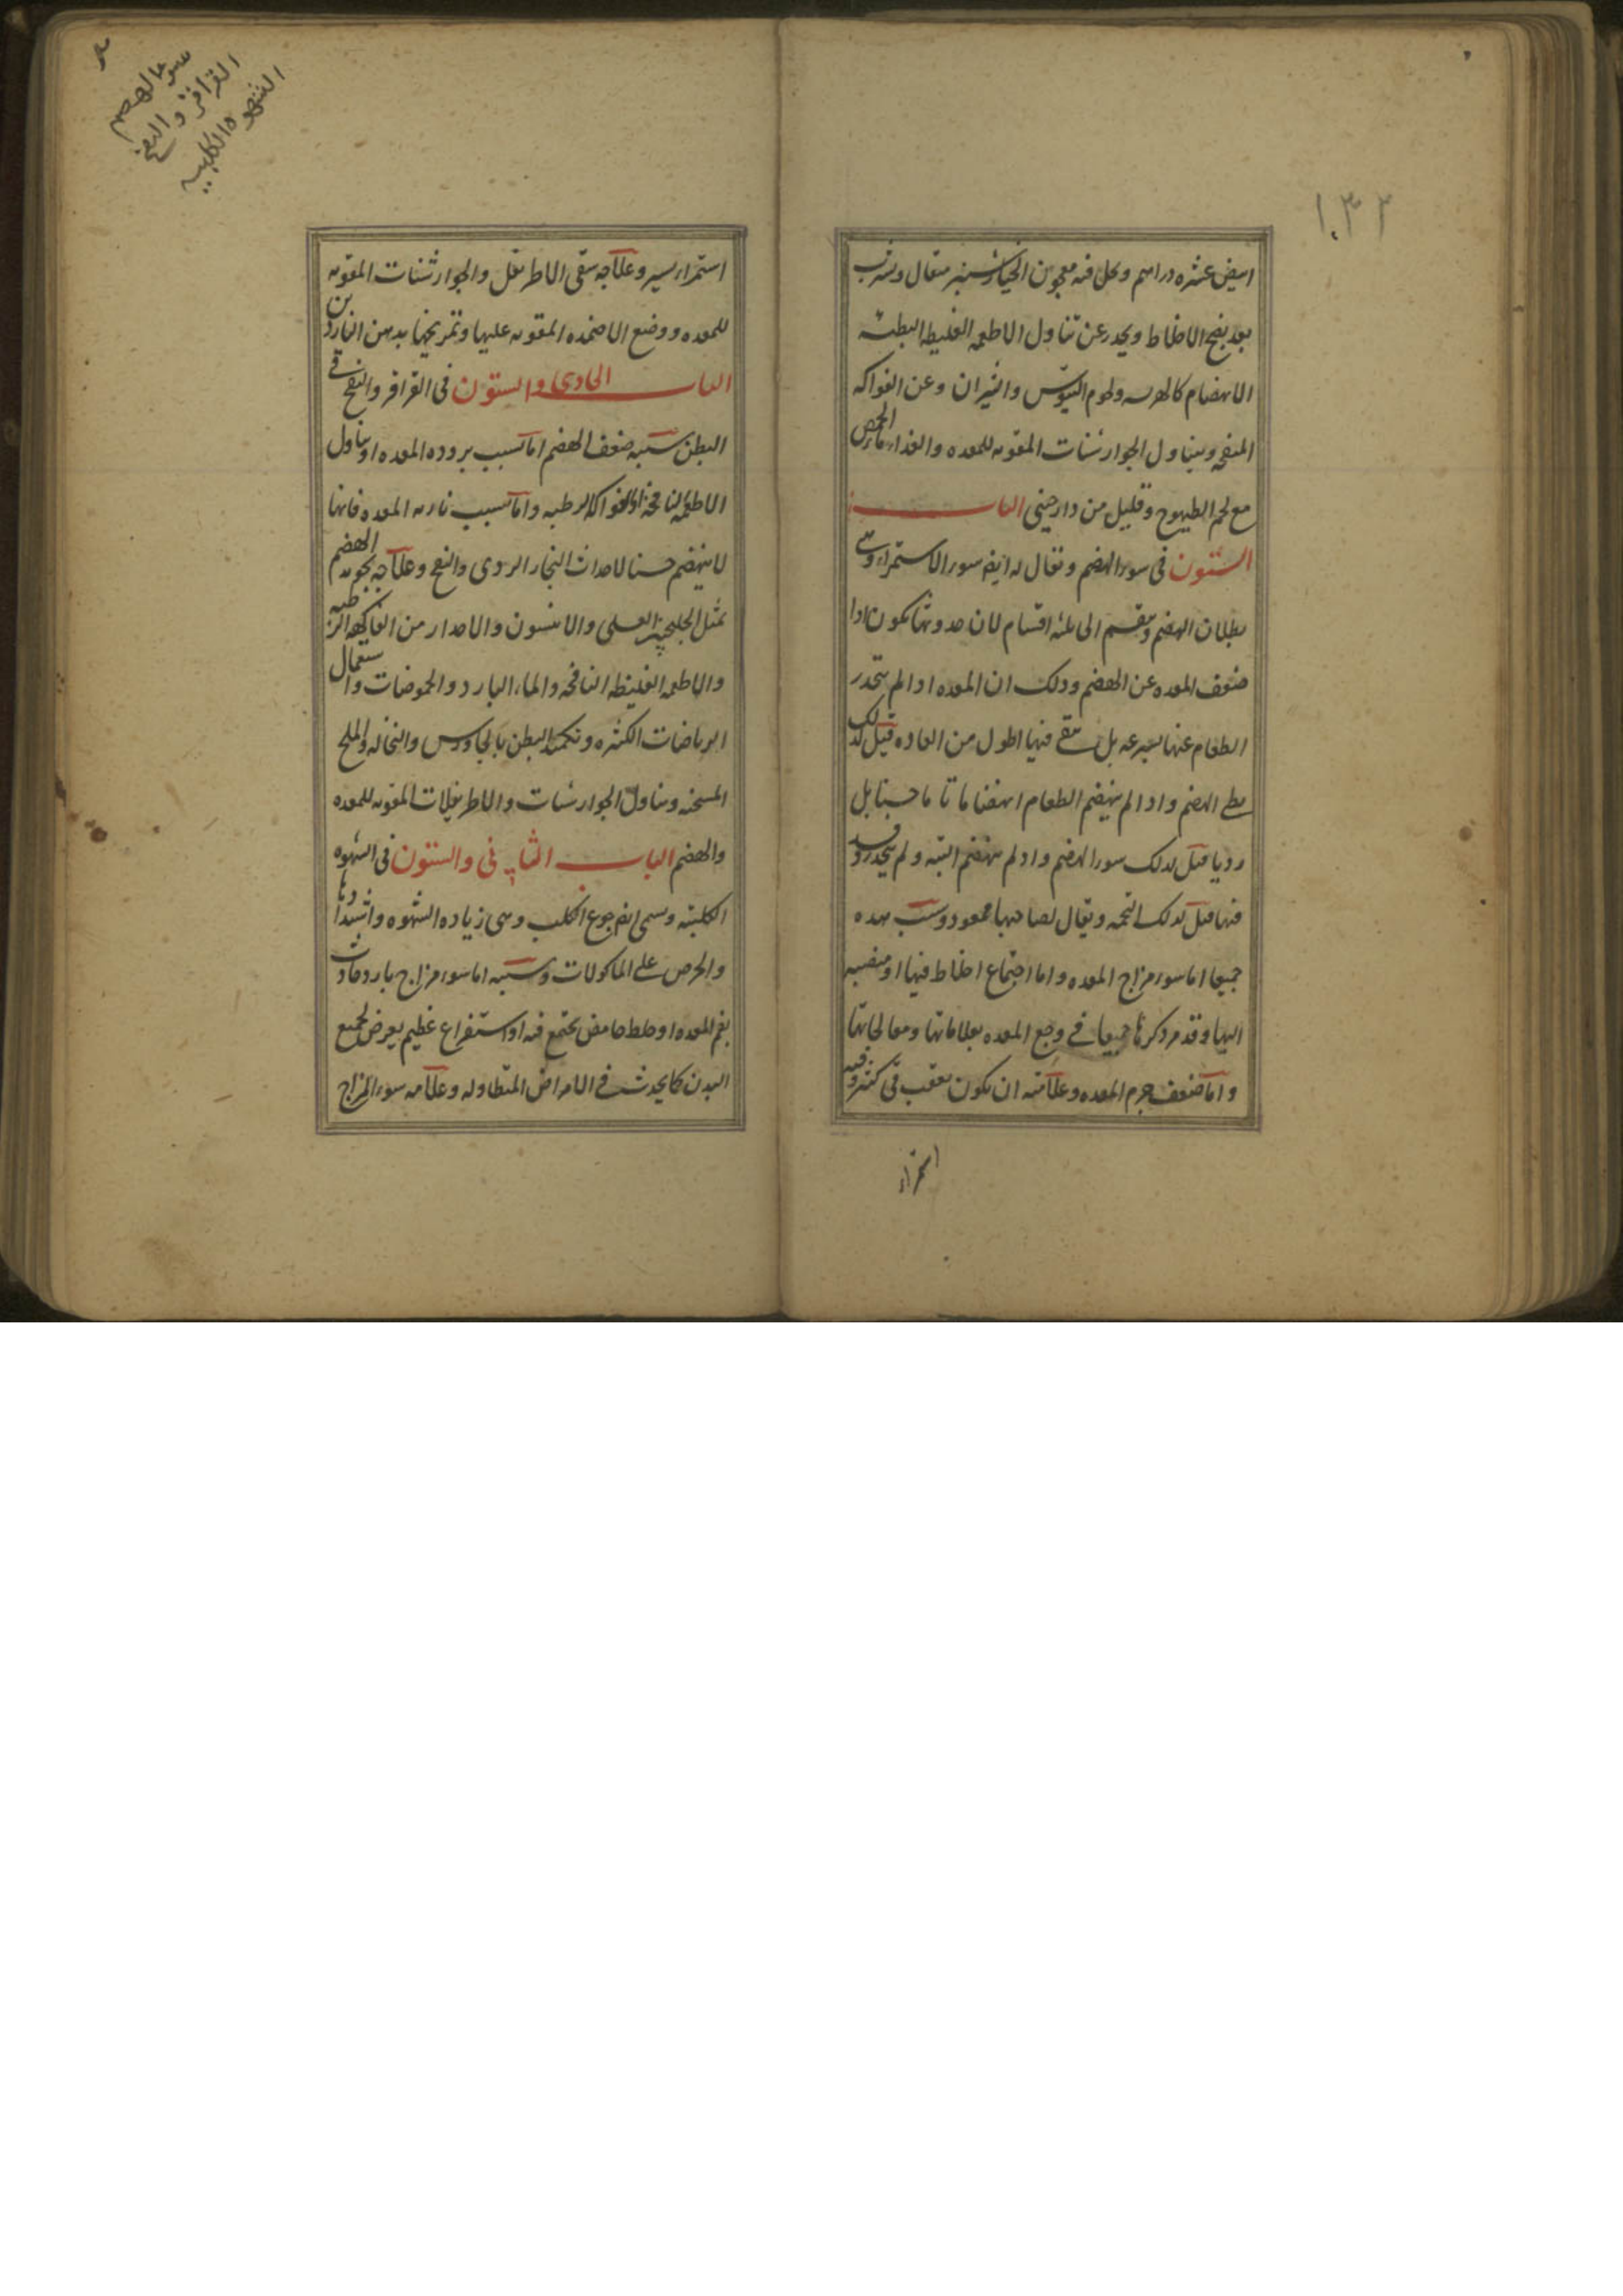 ١٠٣٢
ابيض عشره دراهم ويحل فيه معجون الخيارشنبر مثقال ويشرب
بعد نضج الاخلاط ويحذر عن تناول الاطعمه الغليظه البطئه
الانهضام كالهريسه ولحوم التيوس والثيران وعن الفواكه
المنفخه ويتناول الجوارشنات المقويه للمعده والغذاء ماء الحمص
مع لحم الطيهوج وقليل من دارچيني الباب
الستون في سوء الهضم ويقال له ايضا سوء الاستمراء وهي
بطلان الهضم وينقسم الى ثلثه اقسام لان حدوثها يكون اذا
ضعف المعده عن الهضم وذلك ان المعده اذا لم ينحدر
الطعام عنها بسرعه بل يبقى فيها اطول من العاده قيل لذلك
بطء الهضم واذا لم ينهضم الطعام انهضاما تاما حسنا بل
رديا قيل لذلك سوء الهضم واذ لم ينهضم البته ولم ينحدر وفسد
فيها قيل لذلك التخمه ويقال لصاحبها ممعود وسبب هذه
جميعا اما سوء مزاج المعده واما اجتماع اخلاط فيها او منصبه
اليها وقد مر ذكرها جميعا في وجع المعده بعلاماتها ومعالجاتها
واما ضعف جرم المعده وعلامته ان يكون بعقب قي كثير وفيه
استمراء
سوء الهضم
القراقر والنفخ
الشهوه الكلبيه
استمراء يسير وعلاجه سقي الاطريفل والجوارشنات المقويه
للمعده ووضع الاضمده المقويه عليها وتمريخها بدهن الناردين
الباب الحادي والستون في القراقر والنفخ في
البطن سببه ضعف الهضم اما بسبب بروده المعده او تناول
الاطعمه النافخه او الفواكه الرطبه واما بسبب ناريه المعده فانها
لا ينهضم حسنا لاحداث البخار الردي والنفخ وعلاجه تجويد الهضم
بمثل الجلنجبين العسلي والانيسون والاحذار من الفاكهه الرطبه
والاطعمه الغليظه النافخه والماء البارد والحموضات واستعمال
الرياضات الكثيره وتكميد البطن بالجاورس والنخاله والملح
المسخنه وتناول الجوارشنات والاطريفلات المقويه للمعده
والهضم الباب الثاني والستون في الشهوه
الكلبيه ويسمى ايضا جوع الكلب وهي زياده الشهوه واشتدادها
والحرص على الماكولات وسببه اما سوء مزاج بارد حادث
بفم المعده او خلط حامض يجتمع فيه او استفراغ عظيم يعرض لجميع
البدن كما يحدث في الامراض المتطاوله وعلامه سوء المزاج